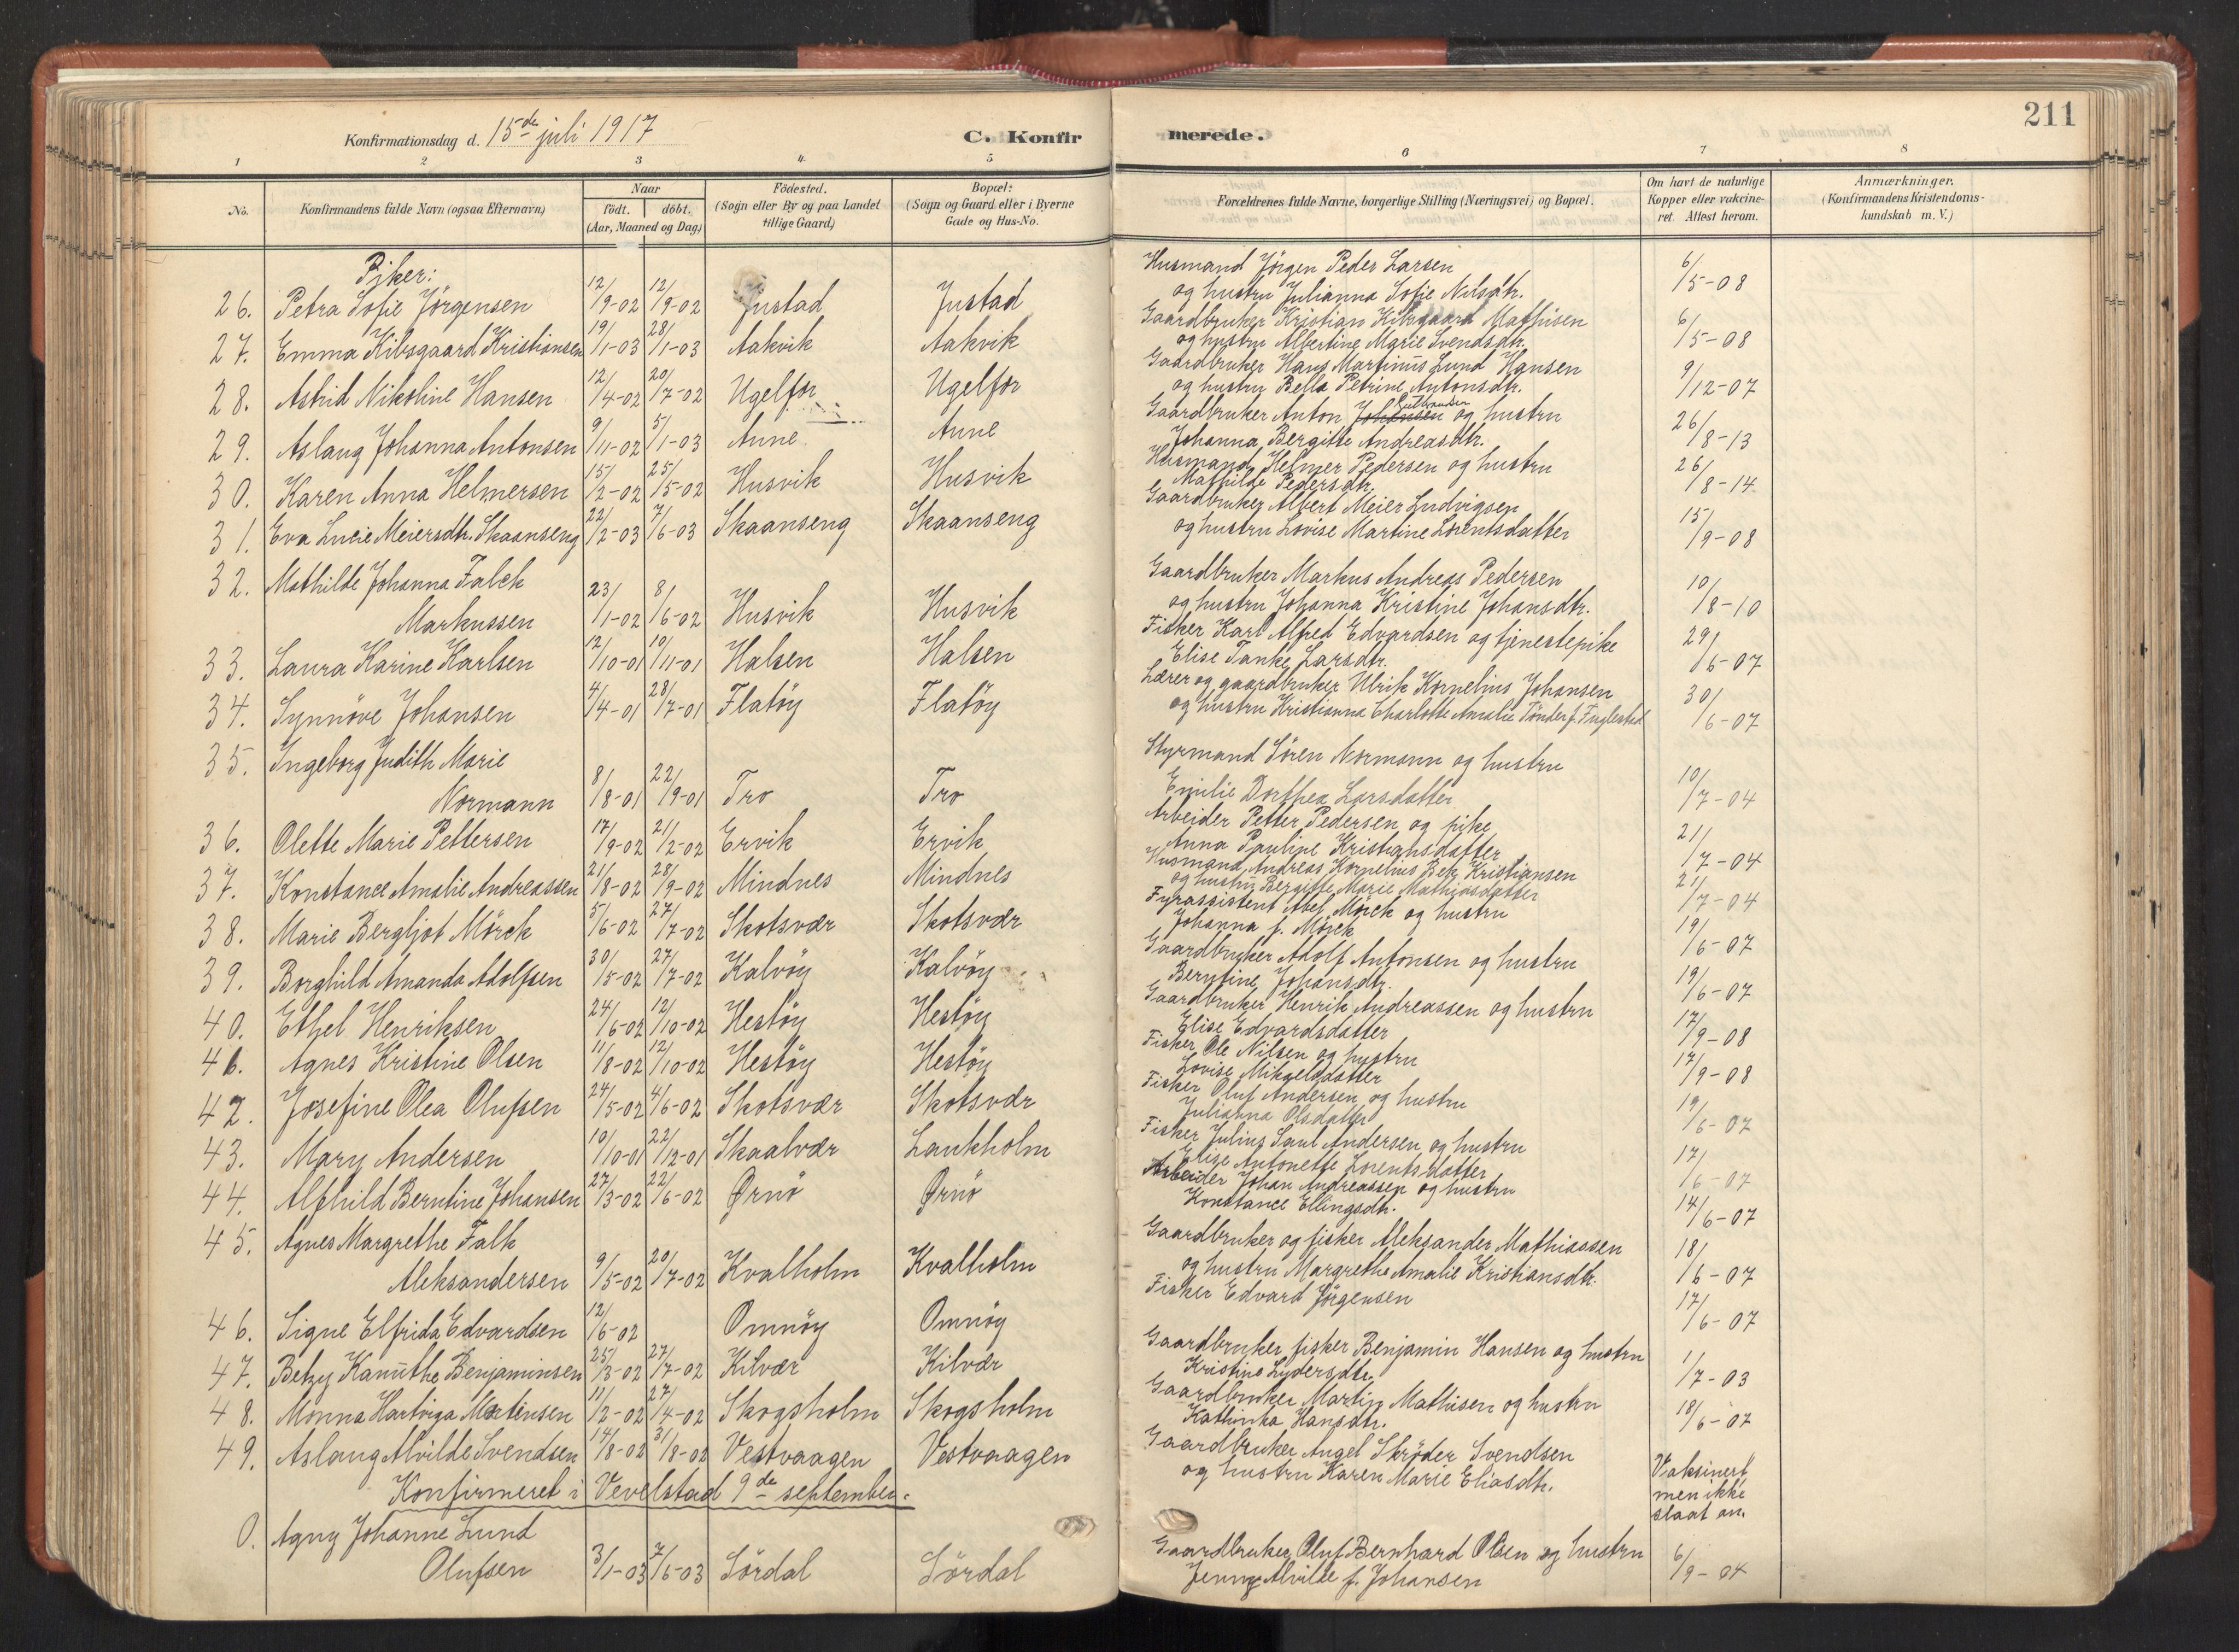 211
Konfirmationsdag d. 15de juli 1917
C. Konfirmerede.
1 2 3 4. 5 6 7 8
No.
Konfirmandens fulde Navn (ogsaa Efternavn)
Naar
født. døbt.
(Aar, Maaned og Dag)
Födested.
(Sogn eller By og paa Landet
tillige Gaard)
Bopæl:
(Sogn og Gaard eller i Byerne
Gade og Hus-No.
Forældrenes fulde Navne, borgerlige Stilling (Næringsvei) og Bopæl.
Om havt de naturlige
Kopper eller vakcine-
ret. Attest herom.
Anmærkninger.
(Konfirmandens Kristendoms-
kundskab m. V.)
Piker:
26. Petra Sofie Jörgensen 12/9-02 12/9-02 Justad Justad
Husmand Jörgen Peder Larsen
og hustru Julianna Sofie Nilsdtr. 6/5-08
27. Emma Kibsgaard Kristiansen 19/1-03 28/1-03 Aakvik Aakvik
Gaardbruker Kristian Kibsgaard Mathisen
og hustru Albertine Marie Svendsdtr. 6/5-08
28. Astrid Nikoline Hansen 12/4-02 20/7-02 Ugelfor Ugelfor
Gaardbruker Hans Martinus Lund Hansen
og hustru Bella Petrine Antonsdtr. 9/12-07
29. Aslaug Johanna Antonsen 9/11-02 5/1-03 Aune Aune
Gaardbruker Anton Johansen og hustru
Johanna Bergitte Andreasdtr. 26/8-13
30. Karen Anna Helmersen 15/2-02 25/5-02 Husvik Husvik
Husmand Helmer Pedersen og hustru
Mathilde Pedersdtr. 26/8-14
31. Eva Lucie Meiersdtr. Skaanseng 22/2-03 7/6-03 Skaanseng Skaanseng
Gaardbruker Albert Meier Ludvigsen
og hustru Lovise Martine Lorentsdatter 15/9-08
32. Mathilde Johanna Falck
Markussen 23/1-02 8/6-02 Husvik Husvik
Gaardbruker Markus Andreas Pedersen
og hustru Johanna Kristine Johansdtr. 10/8-10
33. Laura Karine Karlsen 12/10-01 10/11-01 Halsen Halsen
Fisker Karl Alfred Edvardsen og tjenestepike
Elise Tanke Larsdtr. 29/6-07
34. Synnöve Johansen 4/4-01 28/7-01 Flatöy Flatöy
Lærer og gaardbruker Ulrik Kornelius Johansen
og hustru Kristianna Charlotte Amalie Tönder f. Fuglestad 30/6-07
35. Ingeborg Judith Marie
Normann 8/8-01 22/9-01 Tro Tro
Styrmand Sören Normann og hustru
Emilie Dorthea Larsdatter 10/7-04
36. Olette Marie Pettersen 17/9-02 21/12-02 Ervik Ervik
Arbeider Petter Pedersen og pike
Anna Pauline Kristiansdatter 21/7-04
37. Konstance Amalie Andreassen 21/8-02 28/9-02 Mindnes Mindnes
Husmand Andreas Kornelius Bek Kristiansen
og hustru Bergitte Marie Mathiasdatter 21/7-04
38. Marie Bergljot Mörck 5/6-02 27/7-02 Skotsvær Skotsvær
Fyrassistent Abel Mörck og hustru
Johanna f. Mörck 19/6-07
39. Borghild Amanda Adolfsen 30/5-02 27/7-02 Kalvöy Kalvöy
Gaardbruker Adolf Antonsen og hustru
Berntine Johansdtr. 19/6-07
40. Ethel Henriksen 24/6-02 12/10-02 Hestöy Hestöy
Gaardbruker Henrik Andreassen og hustru
Elise Edvardsdatter 17/9-08
41. Agnes Kristine Olsen 11/8-02 12/10-02 Hestöy Hestöy
Fisker Ole Nilsen og hustru
Lovise Mikaelsdatter 17/9-08
42. Josefine Olea Olufsen 24/5-02 4/6-02 Skotsvær Skotsvær
Fisker Oluf Andersen og hustru
Julianna Olsdatter 19/6-07
43. Mary Andersen 10/10-01 22/12-01 Skaalvær Laukholm
Fisker Julius Saul Andersen og hustru
Elise Antonette Lorentsdatter 17/6-07
44. Alfhild Berntine Johansen 27/3-02 22/6-02 Ørnö Ørnö
Arbeider Johan Andreassen og hustru
Konstance Ellingsdtr. 14/6-07
45. Agnes Margrethe Falk
Aleksandersen 9/5-02 20/7-02 Kvalholm Kvalholm
Gaardbruker og fisker Aleksander Mathiassen
og hustru Margrethe Amalie Kristiansdtr. 18/6-07
46. Signe Elfrida Edvardsen 12/6-02 Omnöy Omnöy
Fisker Edvard Jörgensen 17/6-07
47. Betzy Kanuthe Benjaminsen 25/3-02 27/7-02 Kilvær Kilvær
Gaardbruker fisker Benjamin Hansen og hustru
Kristine Lydersdtr. 1/7-03
48. Monna Hartviga Martinsen 11/2-02 27/4-02 Skogsholm Skogsholm
Gaardbruker Martin Mathisen og hustru
Kathinka Hansdtr. 18/6-07
49. Aslaug Alvilde Svendsen 14/8-02 31/8-02 Vestvaagen Vestvaagen
Gaardbruker Angel Skröder Svendsen
og hustru Karen Marie Eliasdtr. Vaksinert
men ikke
slaat an.
Konfirmeret i Vevelstad 9de september.
0. Agny Johanne Lund
Olufsen 3/1-03 7/6-03 Sördal Sördal
Gaardbruker Oluf Bernhard Olsen og hustru
Jenny Alvilde f. Johansen 6/9-04